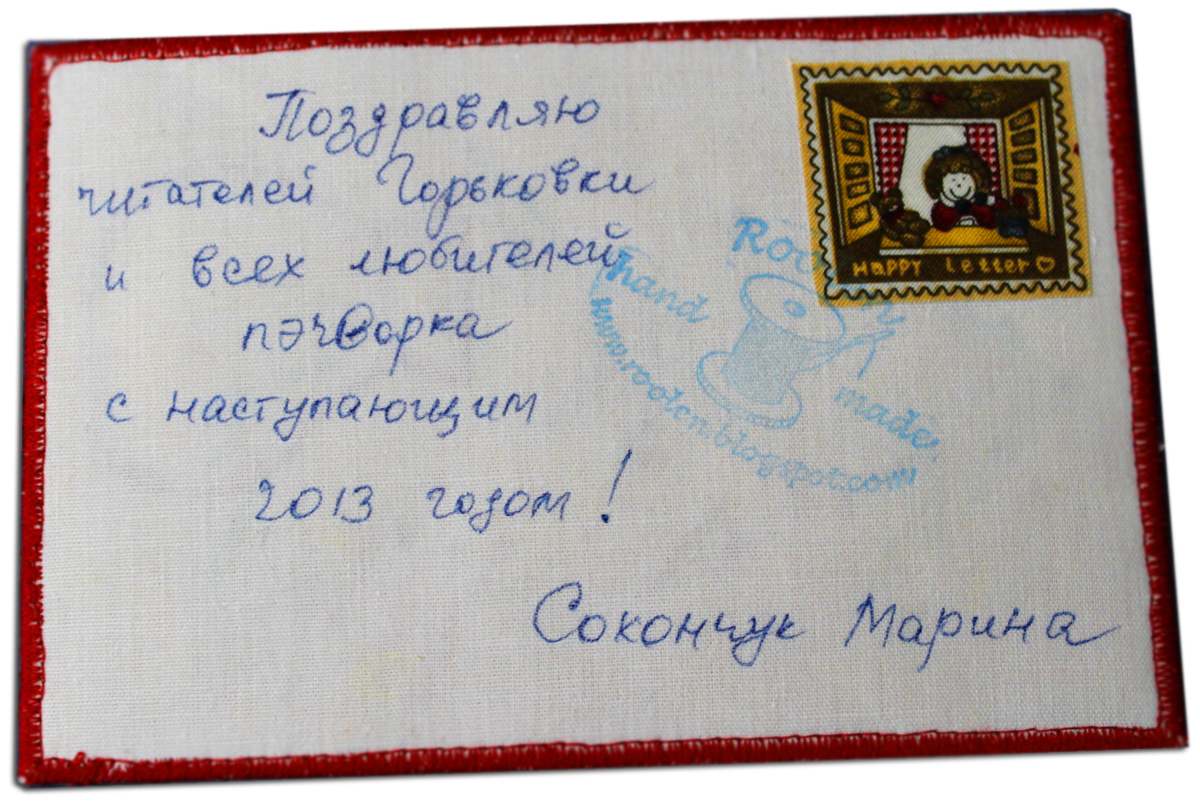 Поздравляю
читателей Горьковки
и всех любителей
пэчворка
с наступающим
2013 годом!
Сокончук Марина
HAPPY LETTER
hand made
www.roolen.blogspot.com